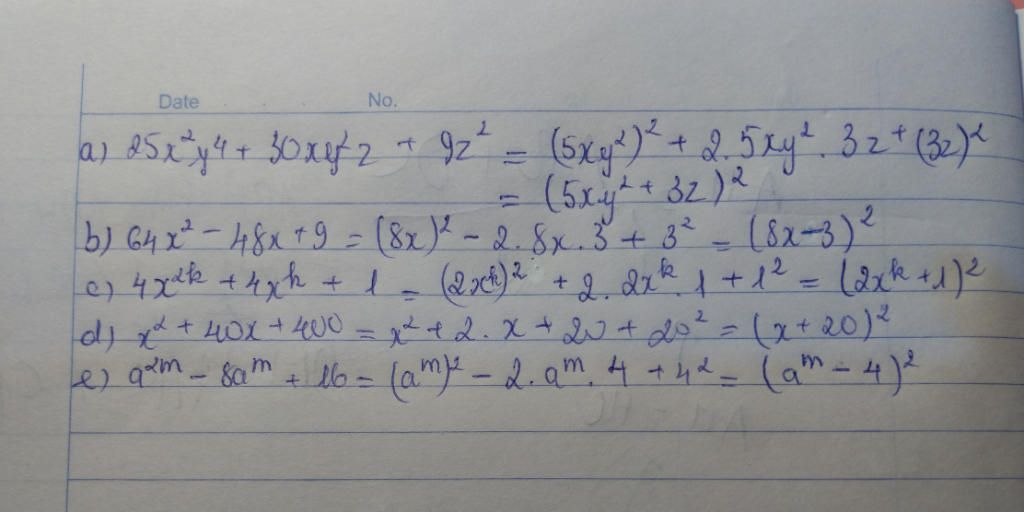 Date No.
a) 25x²y⁴ + 30xy²z + 9z² = (5xy²)² + 2.5xy². 3z + (3z)²
= (5xy² + 3z)²
b) 64x² - 48x + 9 = (8x)² - 2.8x.3 + 3² = (8x-3)²
c) 4x²ᵏ + 4xᵏ + 1 = (2xᵏ)² + 2. 2xᵏ.1 + 1² = (2xᵏ+1)²
d) x² + 40x + 400 = x² + 2. x + 20 + 20² = (x+20)²
e) a²ᵐ - 8aᵐ + 16 = (aᵐ)² - 2.aᵐ. 4 + 4² = (aᵐ - 4)²